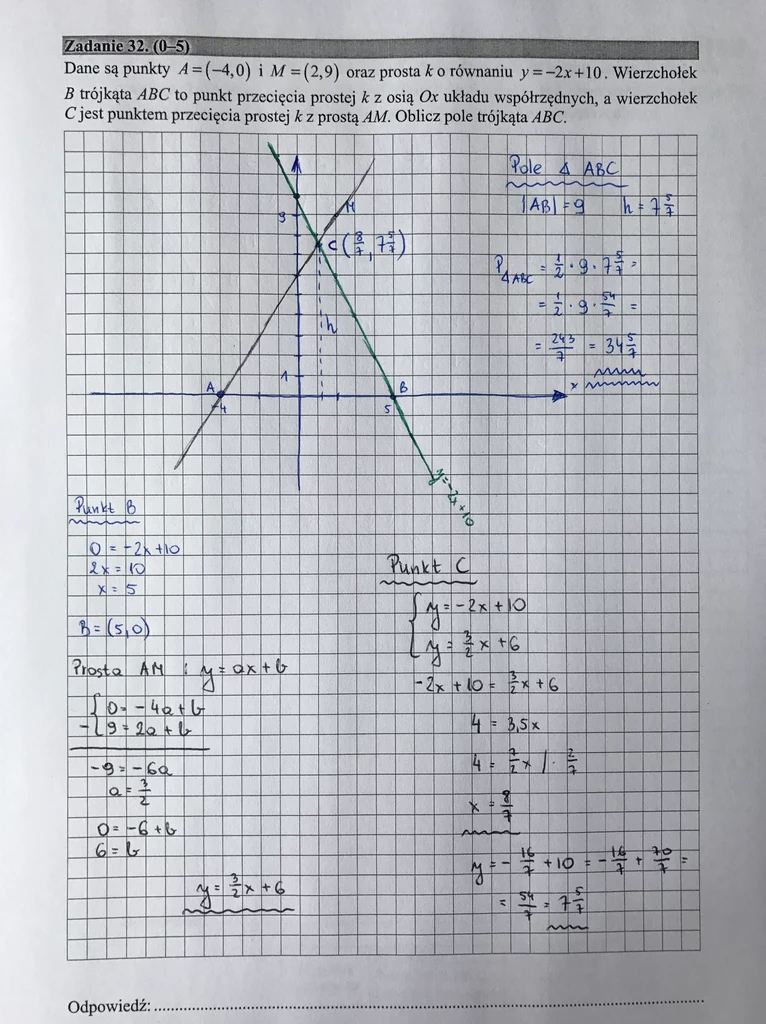 Zadanie 32. (0–5)
Dane są punkty A=(−4,0) i M=(2,9) oraz prosta k o równaniu y=−2x+10. Wierzchołek
B trójkąta ABC to punkt przecięcia prostej k z osią Ox układu współrzędnych, a wierzchołek
C jest punktem przecięcia prostej k z prostą AM. Oblicz pole trójkąta ABC.
Pole Δ ABC
|AB| = 9 h = 7 5/7
P Δ ABC = 1/2 · 9 · 7 5/7 =
= 1/2 · 9 · 54/7 =
= 243/7 = 34 5/7
9
M
C (8/7, 7 5/7)
h
1
A
B
x
-4
5
y=-2x+10
Punkt B
0 = -2x +10
2x = 10
x = 5
B = (5,0)
Prosta AM : y = ax+b
0 = -4a + b
- 9 = 2a + b
-9 = -6a
a = 3/2
0 = -6 + b
6 = b
y = 3/2 x + 6
Punkt C
y = -2x + 10
y = 3/2 x + 6
-2x + 10 = 3/2 x + 6
4 = 3,5x
4 = 7/2 x / · 2/7
x = 8/7
y = - 16/7 + 10 = - 16/7 + 70/7 =
= 54/7 = 7 5/7
Odpowiedź: ........................................................................